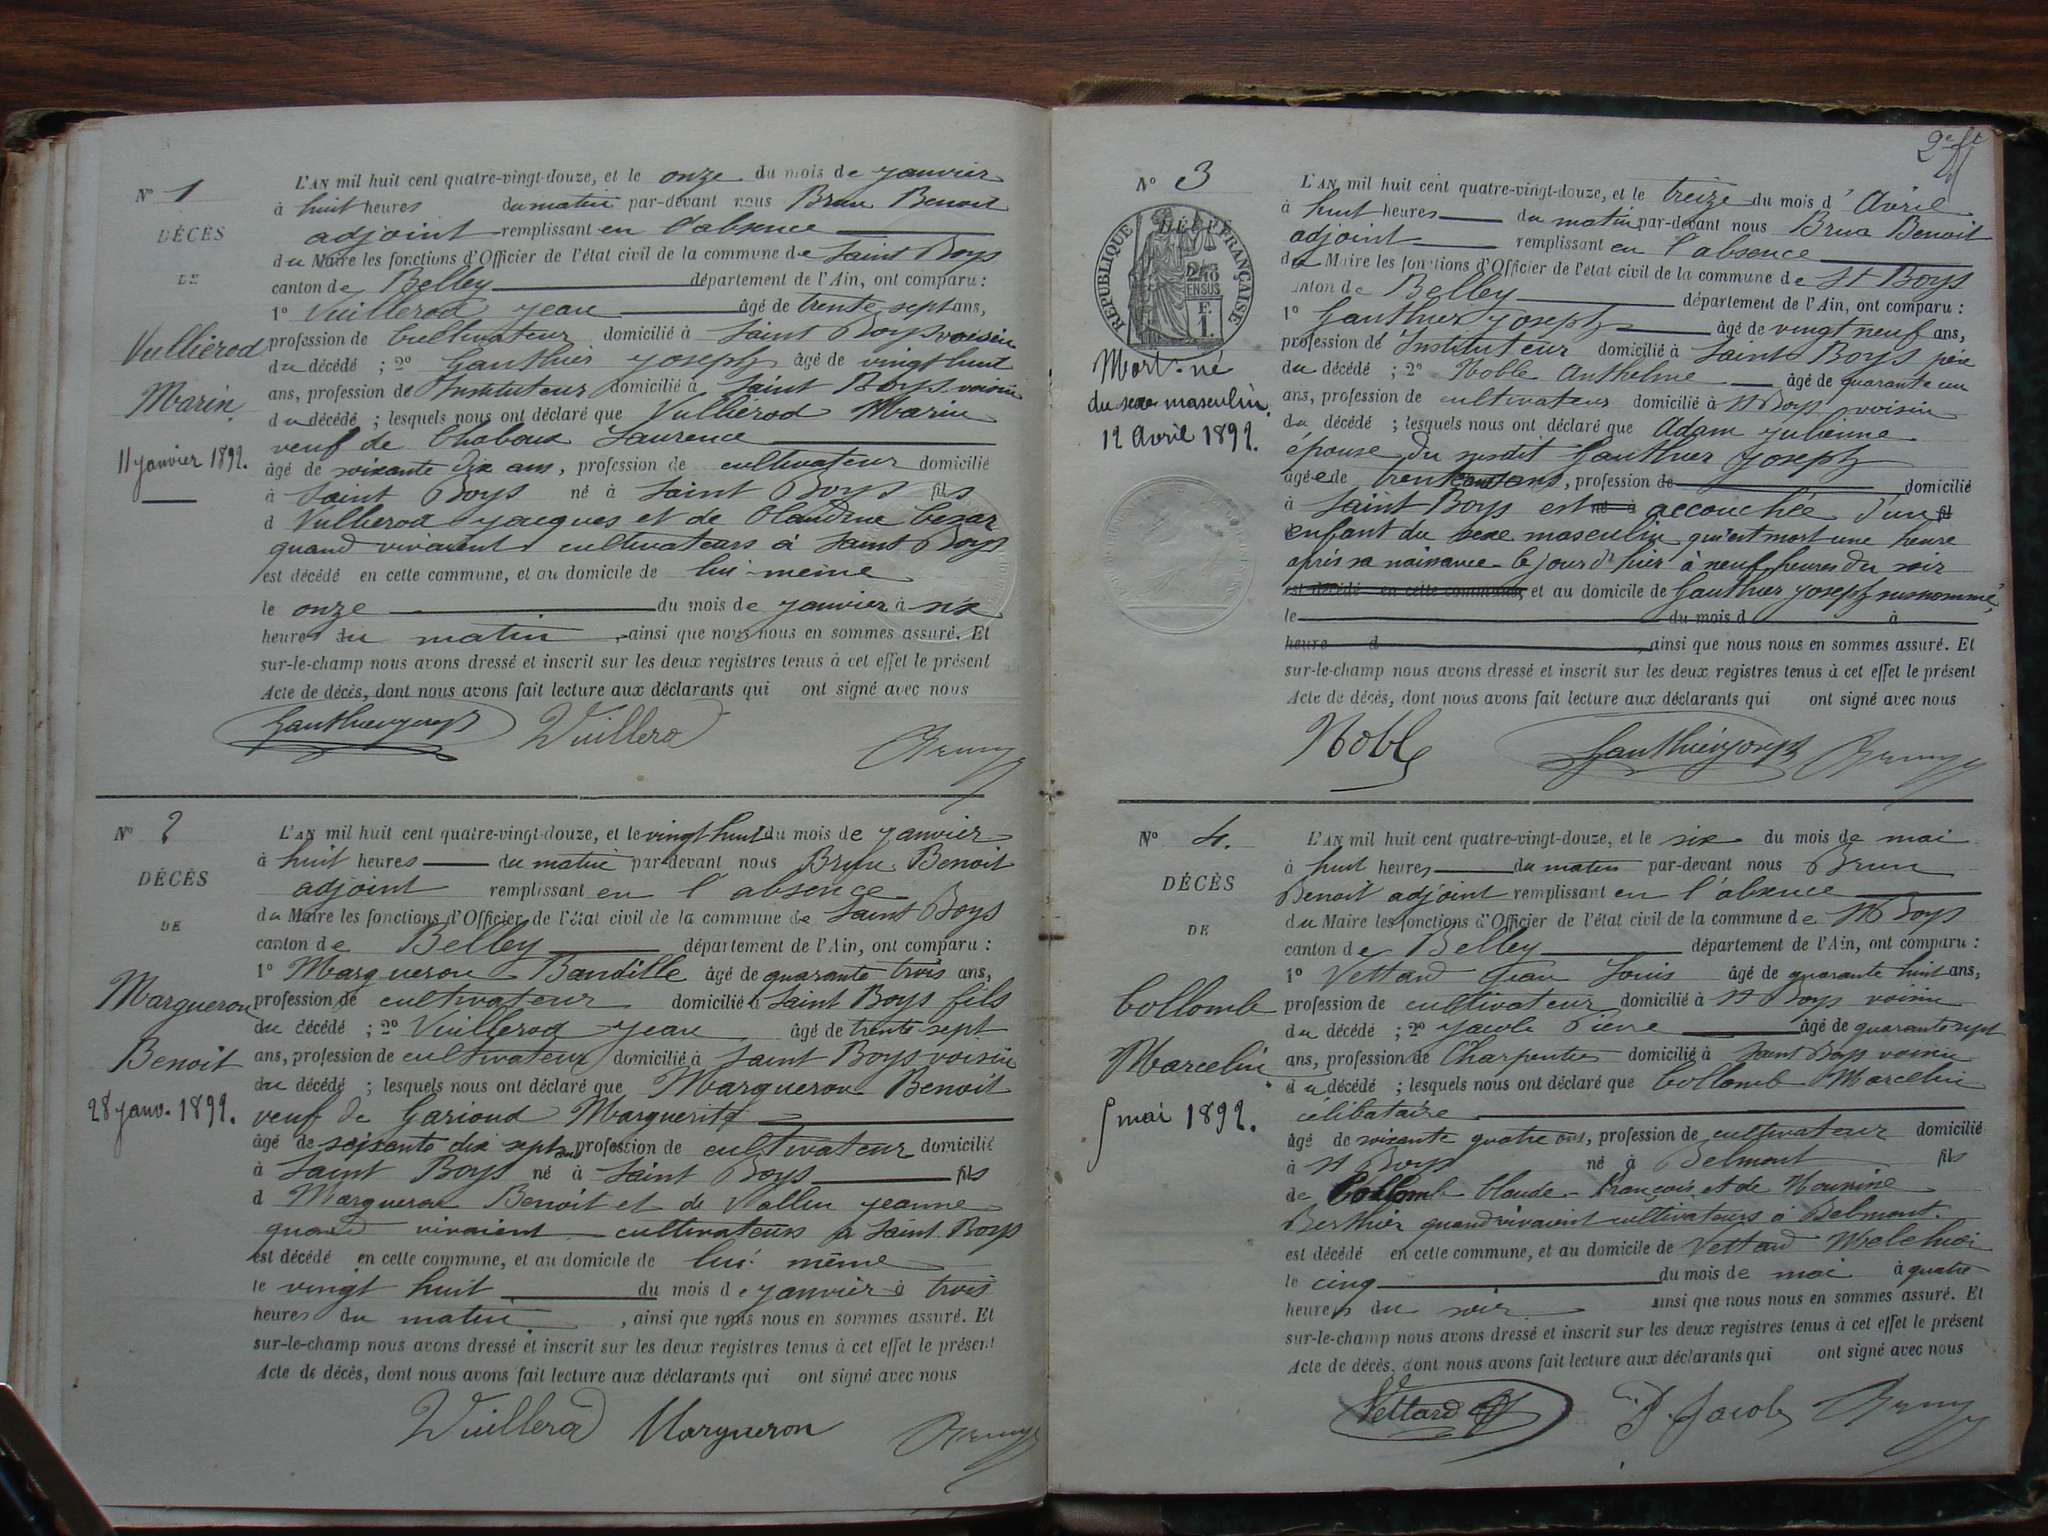 N° 1
DÉCÈS
DE
Vullierod
Marin
11 janvier 1892.
L'AN mil huit cent quatre-vingt-douze, et le onze du mois de janvier
à huit heures du matin par-devant nous Brun Benoit
adjoint remplissant en l'absence
du Maire les fonctions d'Officier de l'état civil de la commune de Saint Boys
canton de Belley département de l'Ain, ont comparu :
1° Vuillerod Jean âgé de trente sept ans,
profession de cultivateur domicilié à Saint Boys voisin
du décédé ; 2° Gauthier Joseph âgé de vingt huit
ans, profession de Instituteur domicilié à Saint Boys voisin
du décédé ; lesquels nous ont déclaré que Vullierod Marin
veuf de Chaboux Laurence
âgé de soixante dix ans, profession de cultivateur domicilié
à Saint Boys né à Saint Boys fils
d Vullierod Jacques et de Claudine
quand vivaient cultivateurs à Saint Boys
est décédé en cette commune, et au domicile de lui-même
le onze du mois de janvier à six
heures du matin, ainsi que nous nous en sommes assuré. Et
sur-le-champ nous avons dressé et inscrit sur les deux registres tenus à cet effet le présent
Acte de décès, dont nous avons fait lecture aux déclarants qui ont signé avec nous
Gauthier Joseph Vuillerod Brun
N° 2
DÉCÈS
DE
Margueron
Benoit
28 janv. 1892.
L'AN mil huit cent quatre-vingt-douze, et le vingt huit du mois de janvier
à huit heures du matin par-devant nous Brun Benoit
adjoint remplissant en l'absence
du Maire les fonctions d'Officier de l'état civil de la commune de Saint Boys
canton de Belley département de l'Ain, ont comparu :
1° Margueron Baudille âgé de quarante trois ans,
profession de cultivateur domicilié à Saint Boys fils
du décédé ; 2° Vuillerod Jean âgé de trente sept
ans, profession de cultivateur domicilié à Saint Boys voisin
du décédé ; lesquels nous ont déclaré que Margueron Benoit
veuf de Garioud Marguerite
âgé de soixante dix sept ans profession de cultivateur domicilié
à Saint Boys né à Saint Boys fils
d Margueron Benoit et de Vallin Jeanne
quand vivaient cultivateurs à Saint Boys
est décédé en cette commune, et au domicile de lui même
le vingt huit du mois de janvier à trois
heures du matin, ainsi que nous nous en sommes assuré. Et
sur-le-champ nous avons dressé et inscrit sur les deux registres tenus à cet effet le présent
Acte de décès, dont nous avons fait lecture aux déclarants qui ont signé avec nous
Vuillerod Margueron Brun
N° 3
DÉCÈS
RÉPUBLIQUE FRANÇAISE
2/10 EN SUS
F. 1.
Mort-né
du sexe masculin.
12 Avril 1892.
L'AN mil huit cent quatre-vingt-douze, et le treize du mois d'Avril
à huit heures du matin par-devant nous Brun Benoit
adjoint remplissant en l'absence
du Maire les fonctions d'Officier de l'état civil de la commune de St Boys
canton de Belley département de l'Ain, ont comparu :
1° Gauthier Joseph âgé de vingt neuf ans,
profession de Instituteur domicilié à Saint Boys père
du décédé ; 2° Noble Anthelme âgé de quarante un
ans, profession de cultivateur domicilié à St Boys voisin
du décédé ; lesquels nous ont déclaré que Adam Julienne
épouse du susdit Gauthier Joseph
âgée de trente ans, profession de domicilié
à Saint Boys est né à accouchée d'un fil
enfant du sexe masculin qui est mort une heure
après sa naissance le jour d'hier à neuf heures du soir
est décédé en cette commune, et au domicile de Gauthier Joseph susnommé,
le du mois d à
heure d , ainsi que nous nous en sommes assuré. Et
sur-le-champ nous avons dressé et inscrit sur les deux registres tenus à cet effet le présent
Acte de décès, dont nous avons fait lecture aux déclarants qui ont signé avec nous
Noble Gauthier Joseph Brun
N° 4.
DÉCÈS
DE
Collomb
Marcelin
5 mai 1892.
L'AN mil huit cent quatre-vingt-douze, et le six du mois de mai
à huit heures du matin par-devant nous Brun
Benoit adjoint remplissant en l'absence
du Maire les fonctions d'Officier de l'état civil de la commune de St Boys
canton de Belley département de l'Ain, ont comparu :
1° Vettard Jean Louis âgé de quarante huit ans,
profession de cultivateur domicilié à St Boys voisin
du décédé ; 2° Jacob Pierre âgé de quarante sept
ans, profession de Charpentier domicilié à Saint Boys voisin
du décédé ; lesquels nous ont déclaré que Collomb Marcelin
célibataire
âgé de soixante quatre ans, profession de cultivateur domicilié
à St Boys né à Belmont fils
de Collomb Claude-François et de
Berthier quand vivaient cultivateurs à Belmont.
est décédé en cette commune, et au domicile de Vettard Melchior
le cinq du mois de mai à quatre
heures du soir ainsi que nous nous en sommes assuré. Et
sur-le-champ nous avons dressé et inscrit sur les deux registres tenus à cet effet le présent
Acte de décès, dont nous avons fait lecture aux déclarants qui ont signé avec nous
Vettard P. Jacob Brun